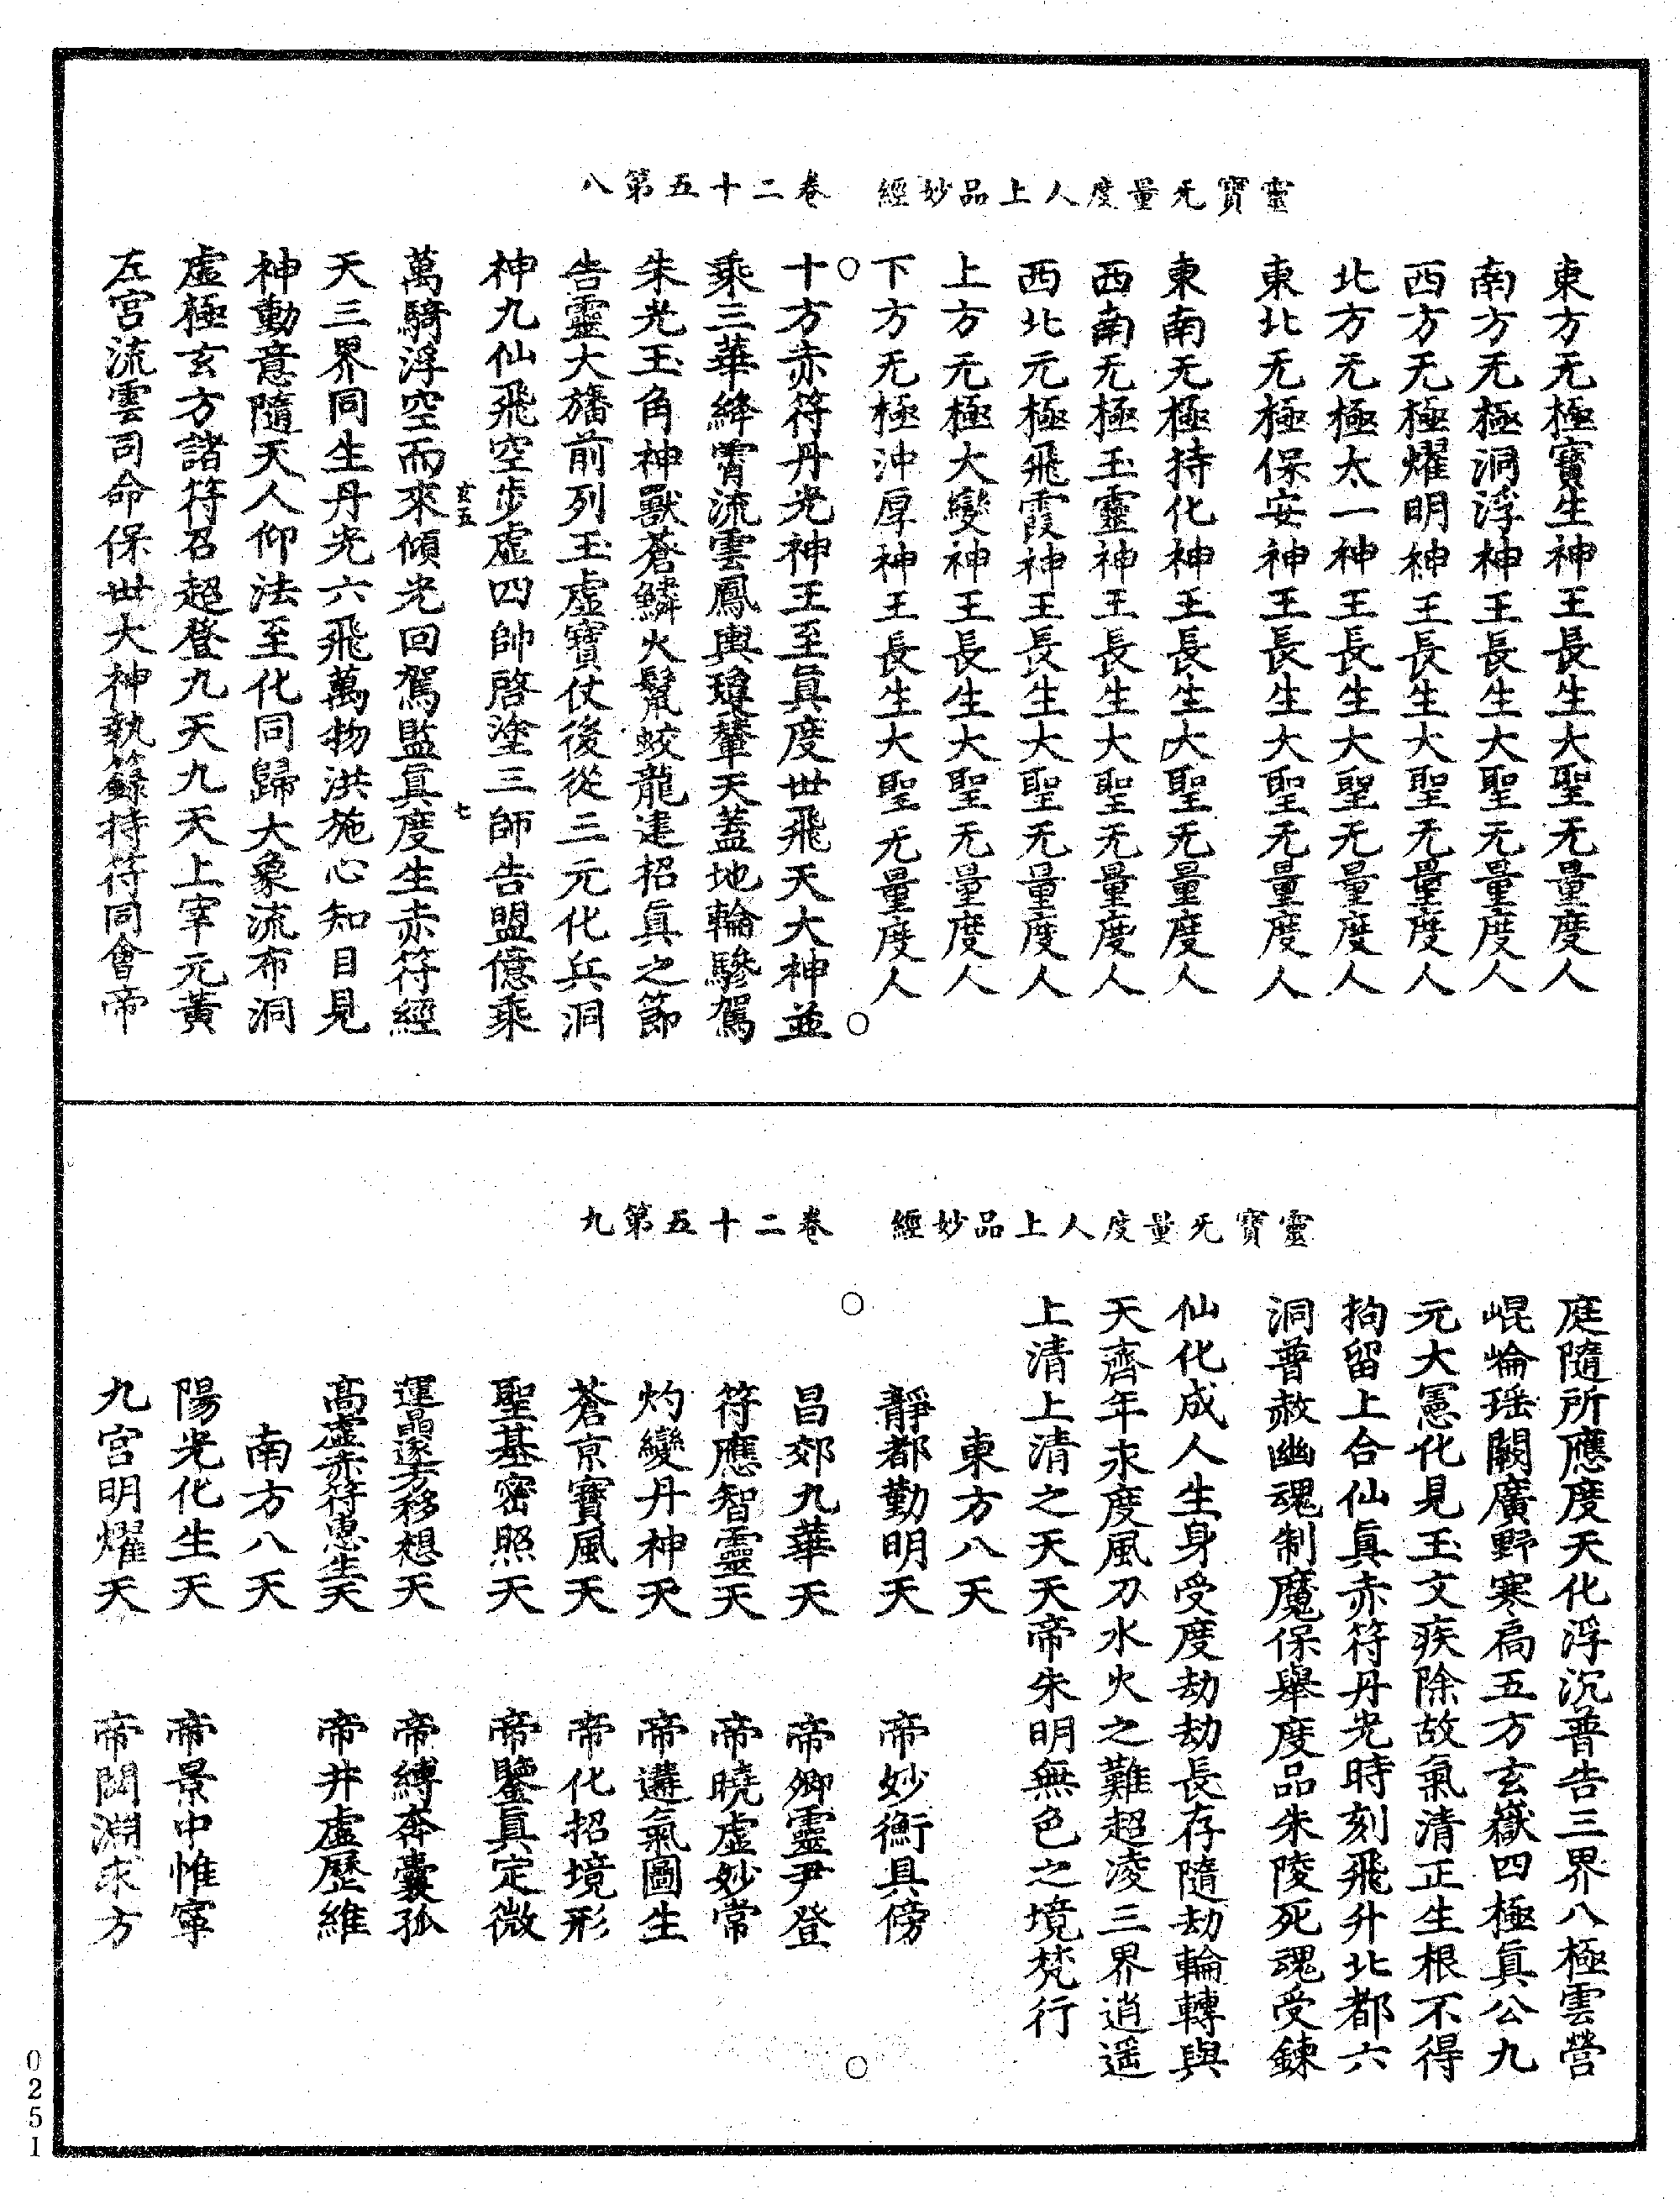 靈寶无量度人上品妙經　卷二十五第八
東方无極寶生神王長生大聖无量度人
南方无極洞浮神王長生大聖无量度人
西方无極耀明神王長生大聖无量度人
北方无極太一神王長生大聖无量度人
東北无極保安神王長生大聖无量度人
東南无極持化神王長生大聖无量度人
西南无極玉靈神王長生大聖无量度人
西北元極飛霞神王長生大聖无量度人
上方无極大變神王長生大聖无量度人
下方无極沖厚神王長生大聖无量度人
○　○
十方赤符丹光神王至眞度世飛天大神並
乘三華絳霄流雲鳳輿瓊輦天蓋地輪驂駕
朱光玉角神獸蒼鱗火鬣蛟龍建招眞之節
告靈大旛前列玉虛寶仗後從三元化兵洞
神九仙飛空步虛四帥啓塗三師告盟億乘
玄五　七
萬騎浮空而來傾光回駕監眞度生赤符經
天三界同生丹光六飛萬物洪施心知目見
神動意隨天人仰法至化同歸大象流布洞
虛極玄方諸符召超登九天九天上宰元黃
左宮流雲司命保世大神執籙持符同會帝
靈寶无量度人上品妙經　卷二十五第九
庭隨所應度天化浮沉普告三界八極雲營
崐崘瑶闕廣野寒扃五方玄嶽四極眞公九
元大憲化見玉文疾除故氣清正生根不得
拘留上合仙眞赤符丹光時刻飛升北都六
洞普赦幽魂制魔保舉度品朱陵死魂受鍊
仙化成人生身受度劫劫長存隨劫輪轉與
天齊年永度風刀水火之難超凌三界逍遥
上清上清之天天帝朱明無色之境梵行
○　○
東方八天
靜都勤明天　帝妙衡具傍
昌郊九華天　帝卿靈尹登
符應智靈天　帝曉虛妙常
灼變丹神天　帝遘氣圖生
蒼京寶風天　帝化招境形
聖基密照天　帝鑒眞定微
運晶逐方移想天　帝縛奔囊孤
高虛赤符惠生天　帝井虛歷維
南方八天
陽光化生天　帝景中惟寧
九宮明耀天　帝閎淵求方
0251